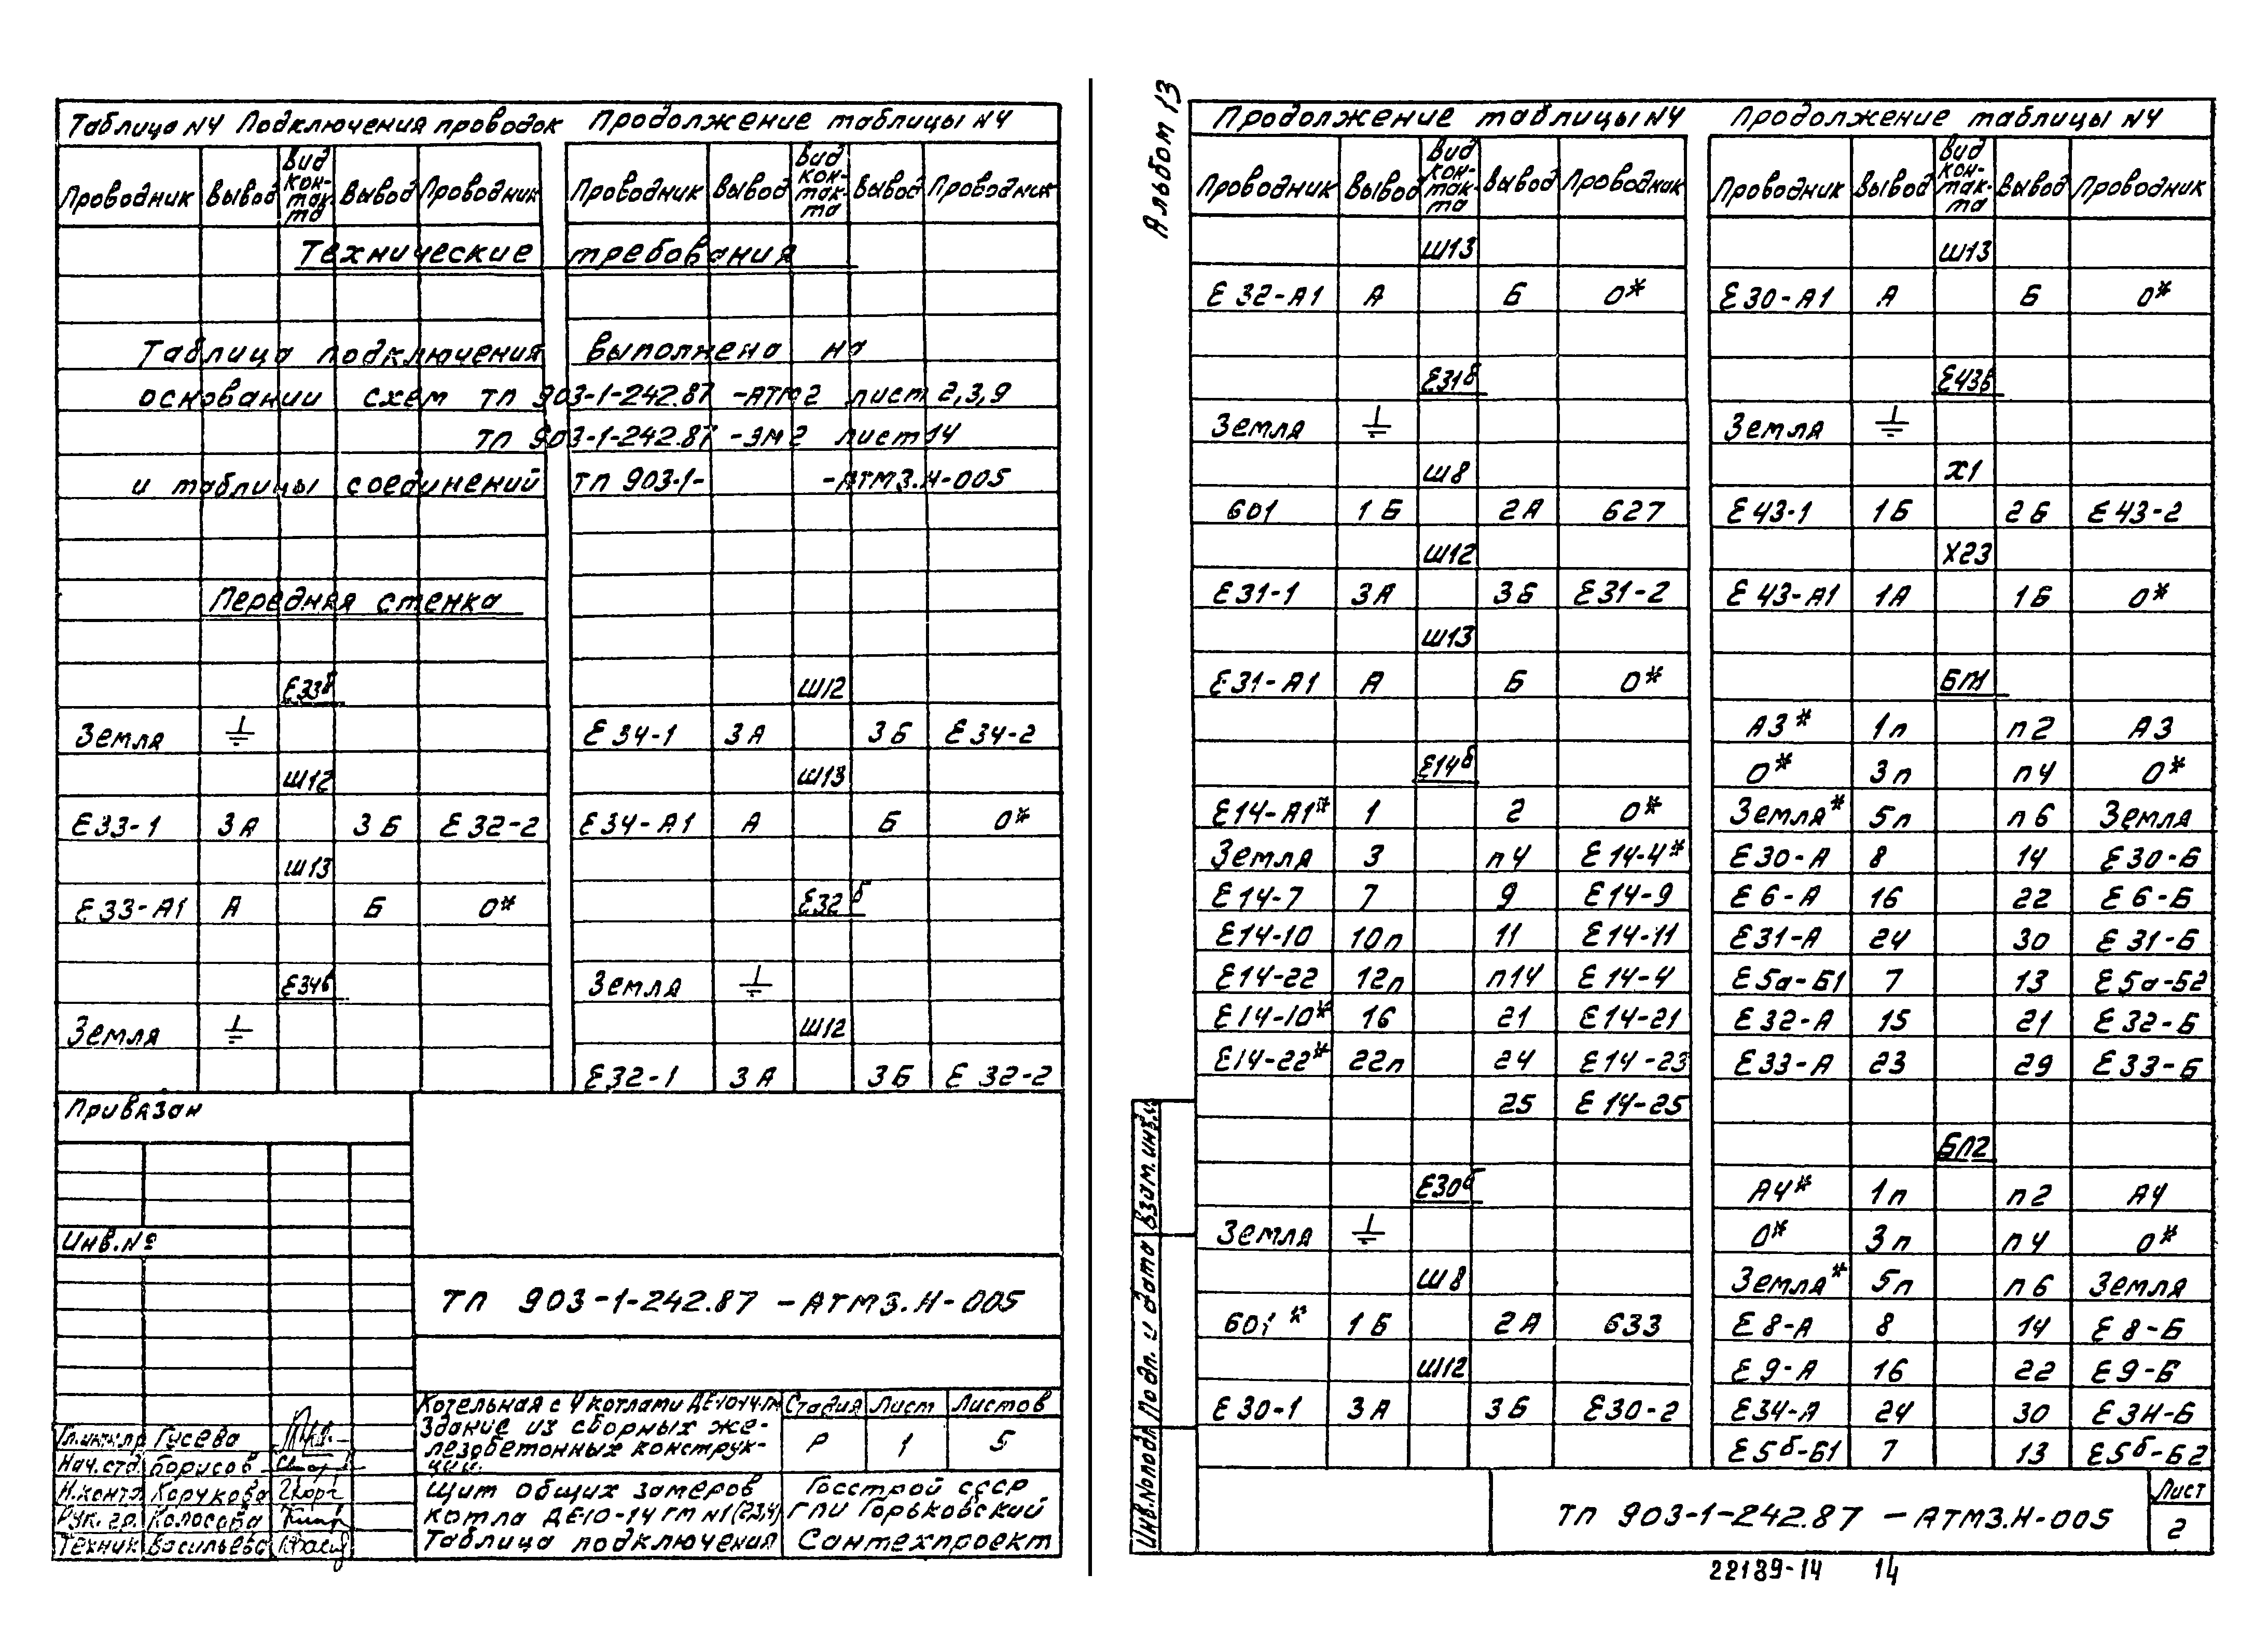 Таблица N4 Подключения проводок Продолжение таблицы N4
Проводник Вывод Вид кон-так-та Вывод Проводник Проводник Вывод Вид кон-так-та Вывод Проводник
Технические требования
Таблица подключения выполнена на
основании схем ТП 903-1-242.87 -АТМ2 лист 2,3,9
ТП 903-1-242.87 -ЭМ2 лист 14
и таблицы соединений ТП 903-1- -АТМ3.Н-005
Передняя стенка
Е33б
Земля ⏚
Ш12
Е33-1 3А 3Б Е32-2
Ш13
Е33-А1 А Б 0*
Е34б
Земля ⏚
Ш12
Е34-1 3А 3Б Е34-2
Ш13
Е34-А1 А Б 0*
Е32б
Земля ⏚
Ш12
Е32-1 3А 3Б Е32-2
Привязан
Инв.№
ТП 903-1-242.87 -АТМ3.Н-005
Котельная с 4 котлами ДЕ-10-14ГМ
Здание из сборных же-
лезобетонных конструк-
ций.
Стадия Лист Листов
Р 1 5
Гл.инж.пр Гусева
Нач.отд. Борисов
Н.контр Корчкова
Рук. гр. Колосова
Техник Васильева
Щит общих замеров
котла ДЕ-10-14ГМ N1(2,3,4)
Таблица подключения
Госстрой СССР
ГПИ Горьковский
Сантехпроект
Альбом 13
Продолжение таблицы N4 Продолжение таблицы N4
Проводник Вывод Вид кон-так-та Вывод Проводник Проводник Вывод Вид кон-так-та Вывод Проводник
Ш13
Е32-А1 А Б 0*
Е31б
Земля ⏚
Ш8
601 1Б 2А 627
Ш12
Е31-1 3А 3Б Е31-2
Ш13
Е31-А1 А Б 0*
Е14б
Е14-А1* 1 2 0*
Земля 3 п4 Е14-4*
Е14-7 7 9 Е14-9
Е14-10 10п 11 Е14-11
Е14-22 12п п14 Е14-4
Е14-10* 16 21 Е14-21
Е14-22* 22п 24 Е14-23
25 Е14-25
Е30б
Земля ⏚
Ш8
601* 1Б 2А 633
Ш12
Е30-1 3А 3Б Е30-2
Ш13
Е30-А1 А Б 0*
Е43б
Земля ⏚
Х1
Е43-1 1Б 2Б Е43-2
Х23
Е43-А1 1А 1Б 0*
БП1
А3* 1п п2 А3
0* 3п п4 0*
Земля* 5п п6 Земля
Е30-А 8 14 Е30-Б
Е6-А 16 22 Е6-Б
Е31-А 24 30 Е31-Б
Е5а-Б1 7 13 Е5а-Б2
Е32-А 15 21 Е32-Б
Е33-А 23 29 Е33-Б
БП2
А4* 1п п2 А4
0* 3п п4 0*
Земля* 5п п6 Земля
Е8-А 8 14 Е8-Б
Е9-А 16 22 Е9-Б
Е34-А 24 30 Е34-Б
Е5б-Б1 7 13 Е5б-Б2
Взам. инв.
Подп. и дата
Инв.№подл
ТП 903-1-242.87 -АТМ3.Н-005
Лист
2
22189-14 14